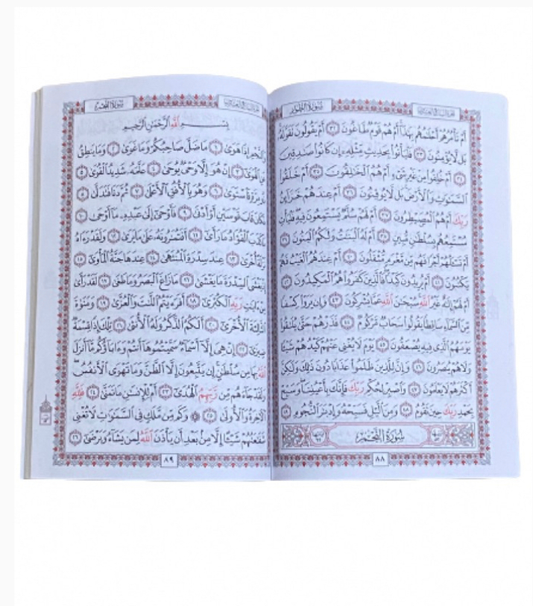 سورة الطور
أَمْ تَأْمُرُهُمْ أَحْلَٰمُهُم بِهَٰذَا أَمْ هُمْ قَوْمٌ طَاغُونَ ٣٢ أَمْ يَقُولُونَ تَقَوَّلَهُ
بَل لَّا يُؤْمِنُونَ ٣٣ فَلْيَأْتُوا بِحَدِيثٍ مِّثْلِهِ إِن كَانُوا صَٰدِقِينَ
٣٤ أَمْ خُلِقُوا مِنْ غَيْرِ شَيْءٍ أَمْ هُمُ الْخَٰلِقُونَ ٣٥ أَمْ خَلَقُوا
السَّمَٰوَٰتِ وَالْأَرْضَ بَل لَّا يُوقِنُونَ ٣٦ أَمْ عِندَهُمْ خَزَائِنُ
رَبِّكَ أَمْ هُمُ الْمُصَيْطِرُونَ ٣٧ أَمْ لَهُمْ سُلَّمٌ يَسْتَمِعُونَ فِيهِ فَلْيَأْتِ
مُسْتَمِعُهُم بِسُلْطَٰنٍ مُّبِينٍ ٣٨ أَمْ لَهُ الْبَنَٰتُ وَلَكُمُ الْبَنُونَ ٣٩
أَمْ تَسْـَٔلُهُمْ أَجْرًا فَهُم مِّن مَّغْرَمٍ مُّثْقَلُونَ ٤٠ أَمْ عِندَهُمُ الْغَيْبُ فَهُمْ
يَكْتُبُونَ ٤١ أَمْ يُرِيدُونَ كَيْدًا فَالَّذِينَ كَفَرُوا هُمُ الْمَكِيدُونَ ٤٢
أَمْ لَهُمْ إِلَٰهٌ غَيْرُ اللَّهِ سُبْحَٰنَ اللَّهِ عَمَّا يُشْرِكُونَ ٤٣ وَإِن يَرَوْا كِسْفًا
مِّنَ السَّمَاءِ سَاقِطًا يَقُولُوا سَحَابٌ مَّرْكُومٌ ٤٤ فَذَرْهُمْ حَتَّىٰ يُلَٰقُوا
يَوْمَهُمُ الَّذِي فِيهِ يُصْعَقُونَ ٤٥ يَوْمَ لَا يُغْنِي عَنْهُمْ كَيْدُهُمْ شَيْـًٔا
وَلَا هُمْ يُنصَرُونَ ٤٦ وَإِنَّ لِلَّذِينَ ظَلَمُوا عَذَابًا دُونَ ذَٰلِكَ وَلَٰكِنَّ
أَكْثَرَهُمْ لَا يَعْلَمُونَ ٤٧ وَاصْبِرْ لِحُكْمِ رَبِّكَ فَإِنَّكَ بِأَعْيُنِنَا وَسَبِّحْ
بِحَمْدِ رَبِّكَ حِينَ تَقُومُ ٤٨ وَمِنَ اللَّيْلِ فَسَبِّحْهُ وَإِدْبَٰرَ النُّجُومِ ٤٩
سُورَةُ النَّجْمِ
٨٨
سورة النجم
بِسْمِ اللَّهِ الرَّحْمَٰنِ الرَّحِيمِ
وَالنَّجْمِ إِذَا هَوَىٰ ١ مَا ضَلَّ صَاحِبُكُمْ وَمَا غَوَىٰ ٢ وَمَا يَنطِقُ
عَنِ الْهَوَىٰ ٣ إِنْ هُوَ إِلَّا وَحْيٌ يُوحَىٰ ٤ عَلَّمَهُ شَدِيدُ الْقُوَىٰ ٥
ذُو مِرَّةٍ فَاسْتَوَىٰ ٦ وَهُوَ بِالْأُفُقِ الْأَعْلَىٰ ٧ ثُمَّ دَنَا فَتَدَلَّىٰ ٨
فَكَانَ قَابَ قَوْسَيْنِ أَوْ أَدْنَىٰ ٩ فَأَوْحَىٰ إِلَىٰ عَبْدِهِ مَا أَوْحَىٰ ١٠
مَا كَذَبَ الْفُؤَادُ مَا رَأَىٰ ١١ أَفَتُمَٰرُونَهُ عَلَىٰ مَا يَرَىٰ ١٢ وَلَقَدْ رَءَاهُ
نَزْلَةً أُخْرَىٰ ١٣ عِندَ سِدْرَةِ الْمُنتَهَىٰ ١٤ عِندَهَا جَنَّةُ الْمَأْوَىٰ ١٥
إِذْ يَغْشَى السِّدْرَةَ مَا يَغْشَىٰ ١٦ مَا زَاغَ الْبَصَرُ وَمَا طَغَىٰ ١٧ لَقَدْ رَأَىٰ
مِنْ ءَايَٰتِ رَبِّهِ الْكُبْرَىٰ ١٨ أَفَرَءَيْتُمُ اللَّٰتَ وَالْعُزَّىٰ ١٩ وَمَنَوٰةَ
الثَّالِثَةَ الْأُخْرَىٰ ٢٠ أَلَكُمُ الذَّكَرُ وَلَهُ الْأُنثَىٰ ٢١ تِلْكَ إِذًا قِسْمَةٌ
ضِيزَىٰ ٢٢ إِنْ هِيَ إِلَّا أَسْمَاءٌ سَمَّيْتُمُوهَا أَنتُمْ وَءَابَاؤُكُم مَّا أَنزَلَ
اللَّهُ بِهَا مِن سُلْطَٰنٍ إِن يَتَّبِعُونَ إِلَّا الظَّنَّ وَمَا تَهْوَى الْأَنفُسُ
وَلَقَدْ جَاءَهُم مِّن رَّبِّهِمُ الْهُدَىٰ ٢٣ أَمْ لِلْإِنسَٰنِ مَا تَمَنَّىٰ ٢٤ فَلِلَّهِ
الْءَاخِرَةُ وَالْأُولَىٰ ٢٥ وَكَم مِّن مَّلَكٍ فِي السَّمَٰوَٰتِ لَا تُغْنِي
شَفَٰعَتُهُمْ شَيْـًٔا إِلَّا مِن بَعْدِ أَن يَأْذَنَ اللَّهُ لِمَن يَشَاءُ وَيَرْضَىٰ ٢٦
٨٩